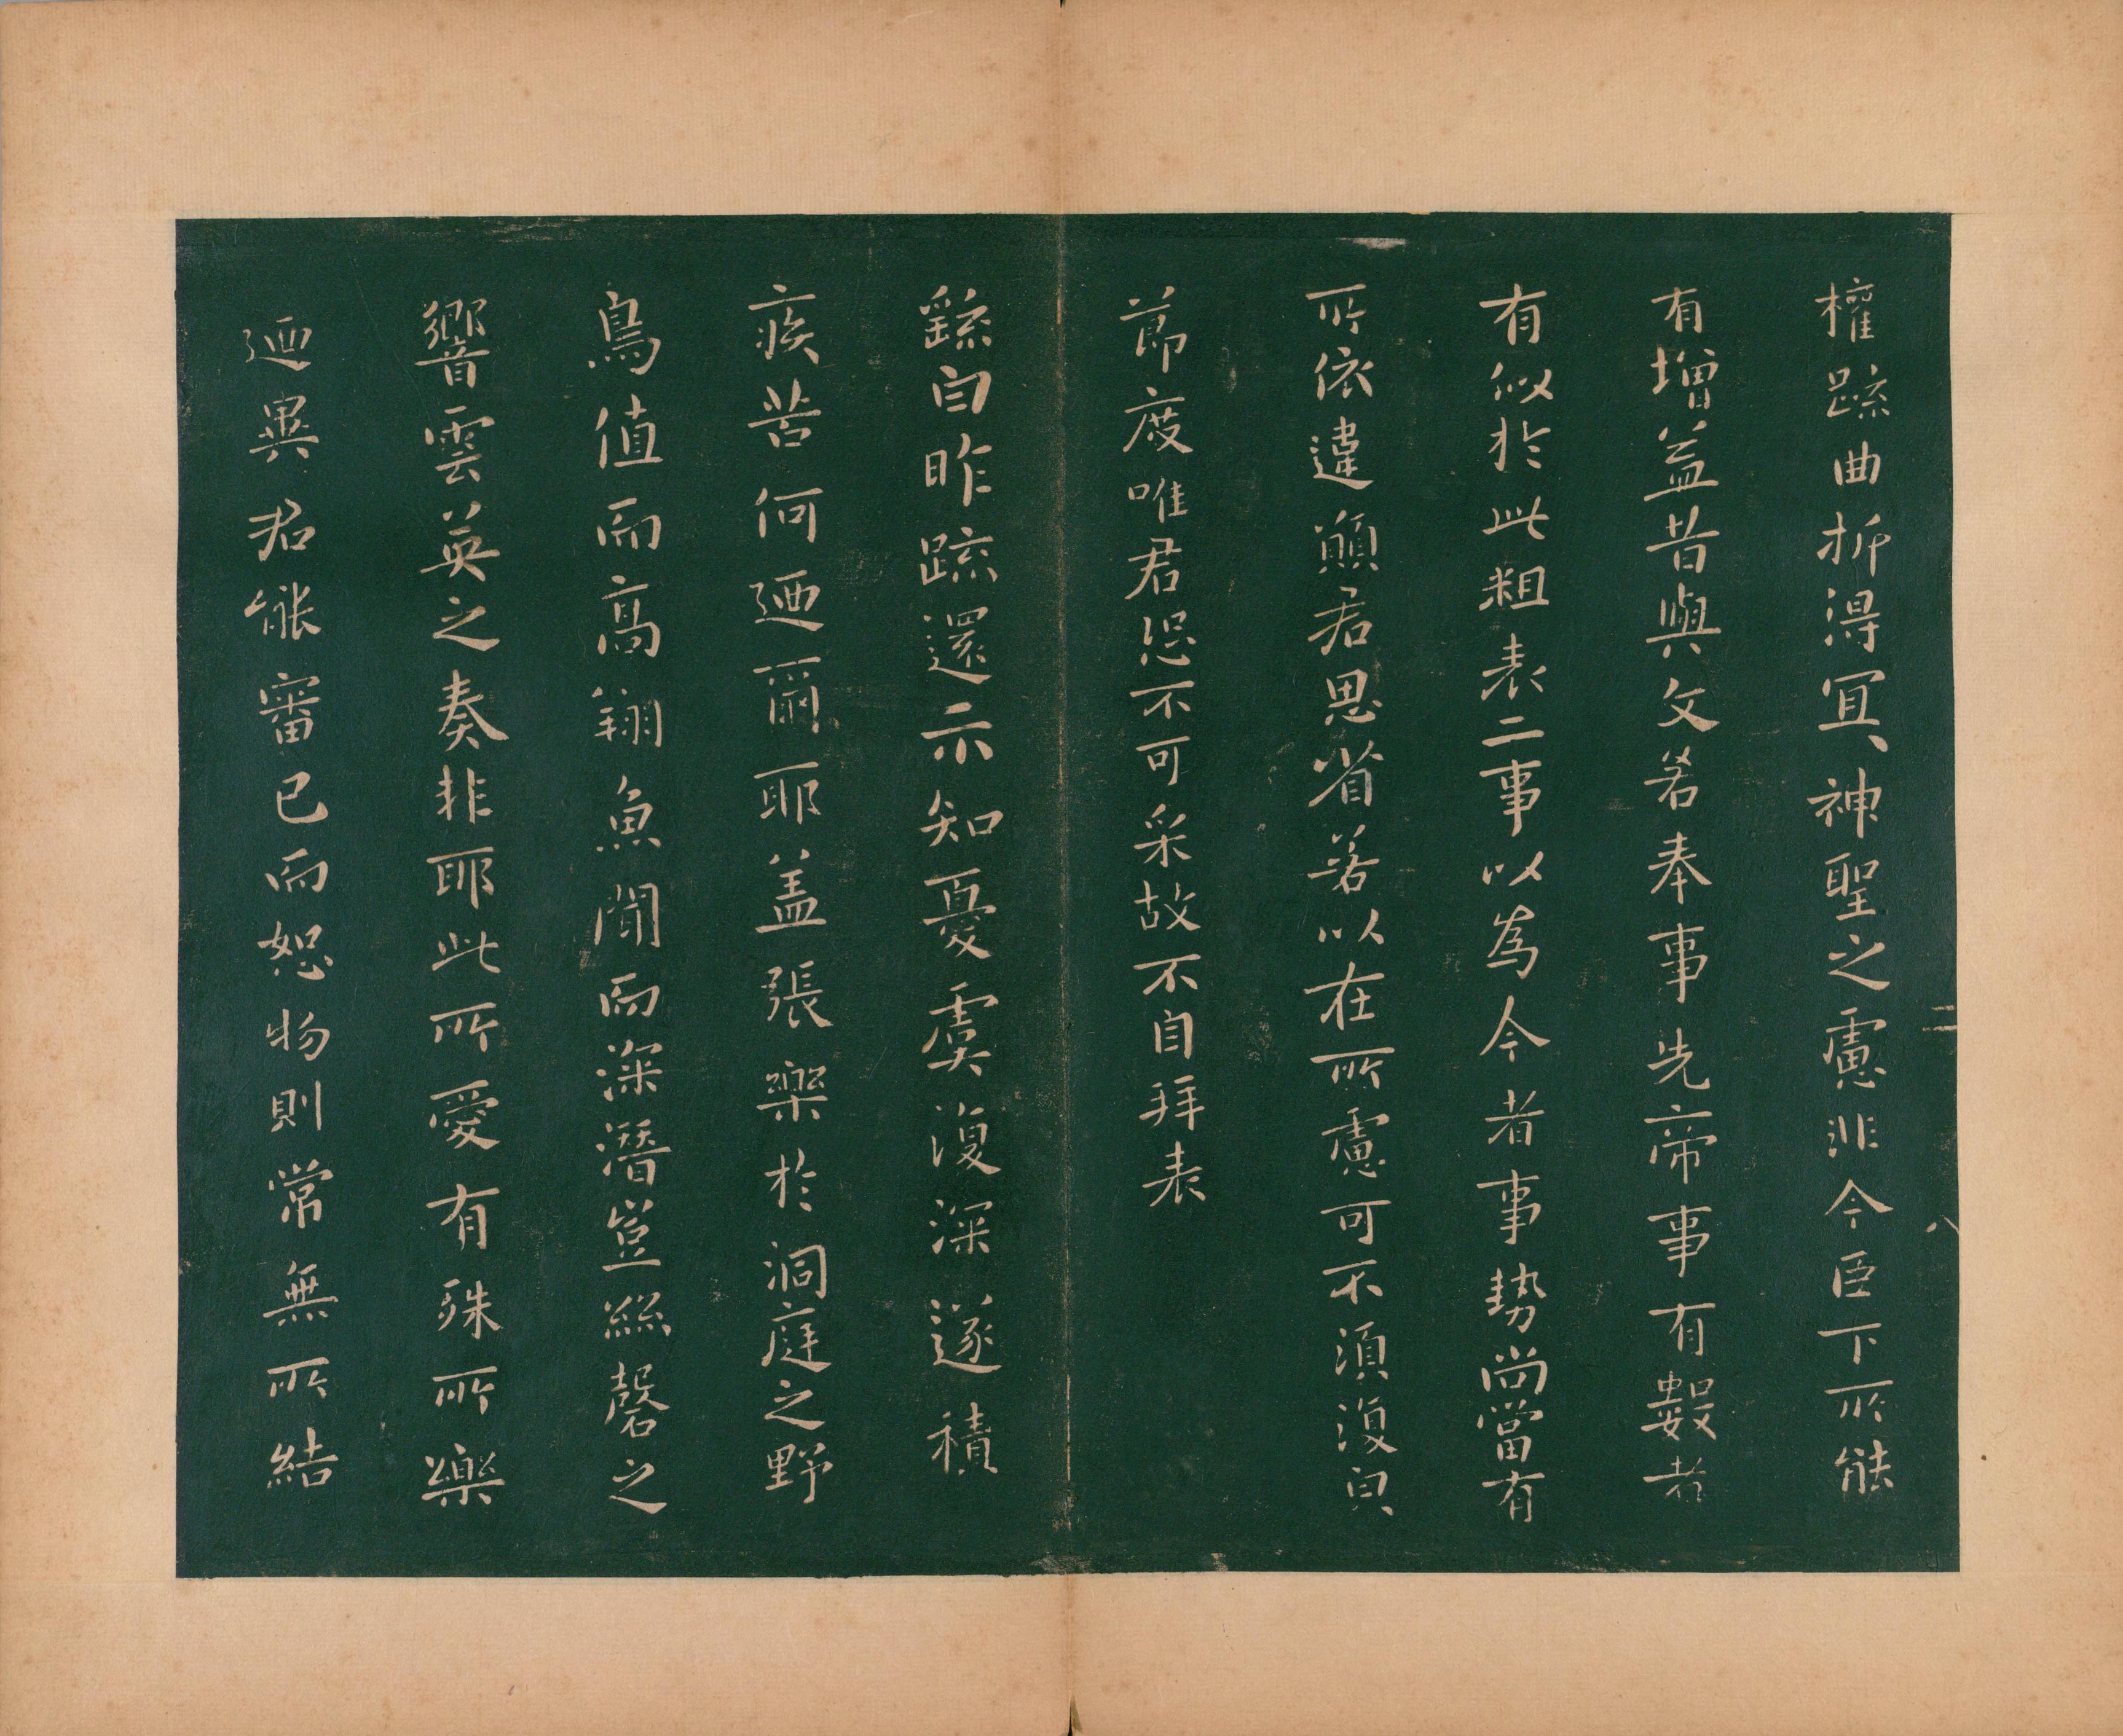 權疏曲折得冝神聖之慮非今臣下所能
有增益昔與文若奉事先帝事有數者
有似於此粗表二事以為今者事勢尚當有
所依違願君思省若以在所慮可不須復皃
節度唯君恐不可采故不自拜表
繇白昨疏還示知憂虞復深遂積
疾苦何迺爾耶蓋張樂於洞庭之野
鳥值而高翔魚聞而深潛豈絲磬之
響雲英之奏非耶此所愛有殊所樂
迺異君能審己而恕物則常無所結
二
八